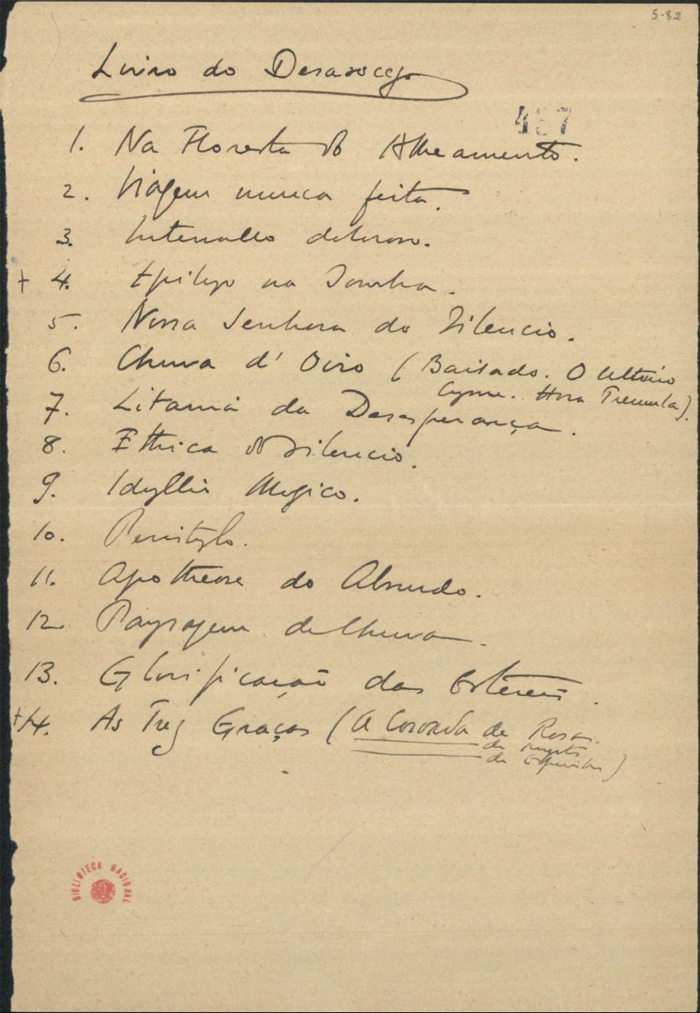 5-82
Livro do Desasocego
4 7
1. Na Floresta do Alheamento.
2. Viagem nunca feita.
3. Intervallo doloroso.
+ 4. Epilogo na Sombra.
5. Nossa Senhora do Silencio.
6. Chuva d'Oiro (Bailado. O Ultimo
Cysne. Hora Tremula).
7. Litania da Desesperança.
8. Ethica do Silencio.
9. Idyllio Magico.
10. Peristylo.
11. Apotheose do Absurdo.
12 Paysagem de Chuva.
13. Glorificação das Estereis.
+14. As Tres Graças (A Coroada de Rosas.
de Myrtos
de Espinhos)
BIBLIOTECA NACIONAL